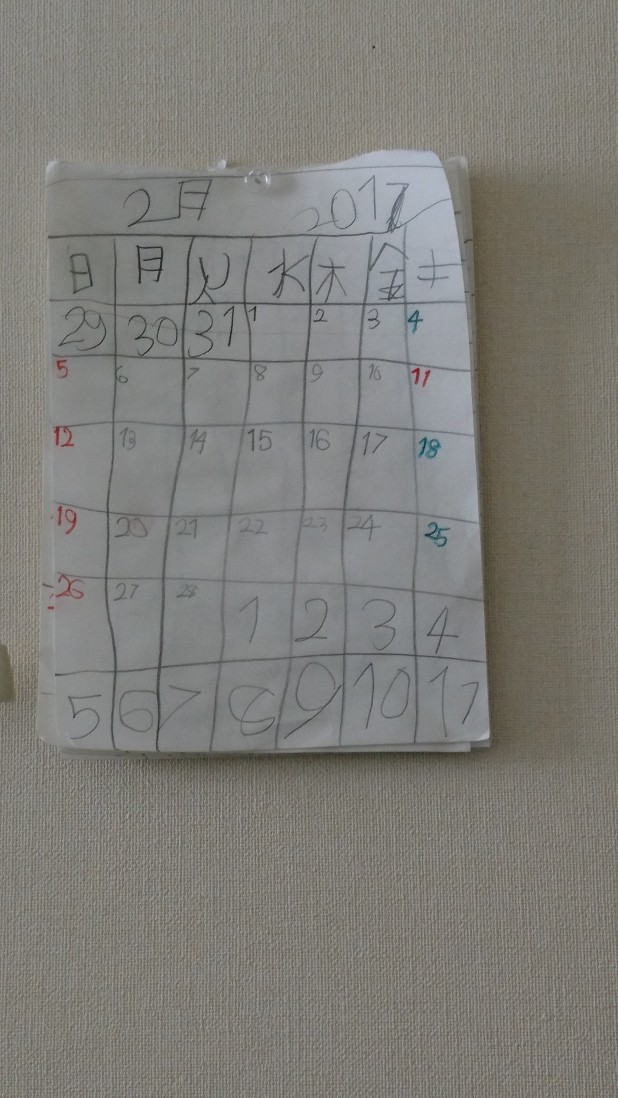 2月 2017
日 月 火 水 木 金 土
29 30 31 1 2 3 4
5 6 7 8 9 10 11
12 13 14 15 16 17 18
19 20 21 22 23 24 25
26 27 28 1 2 3 4
5 6 7 8 9 10 11